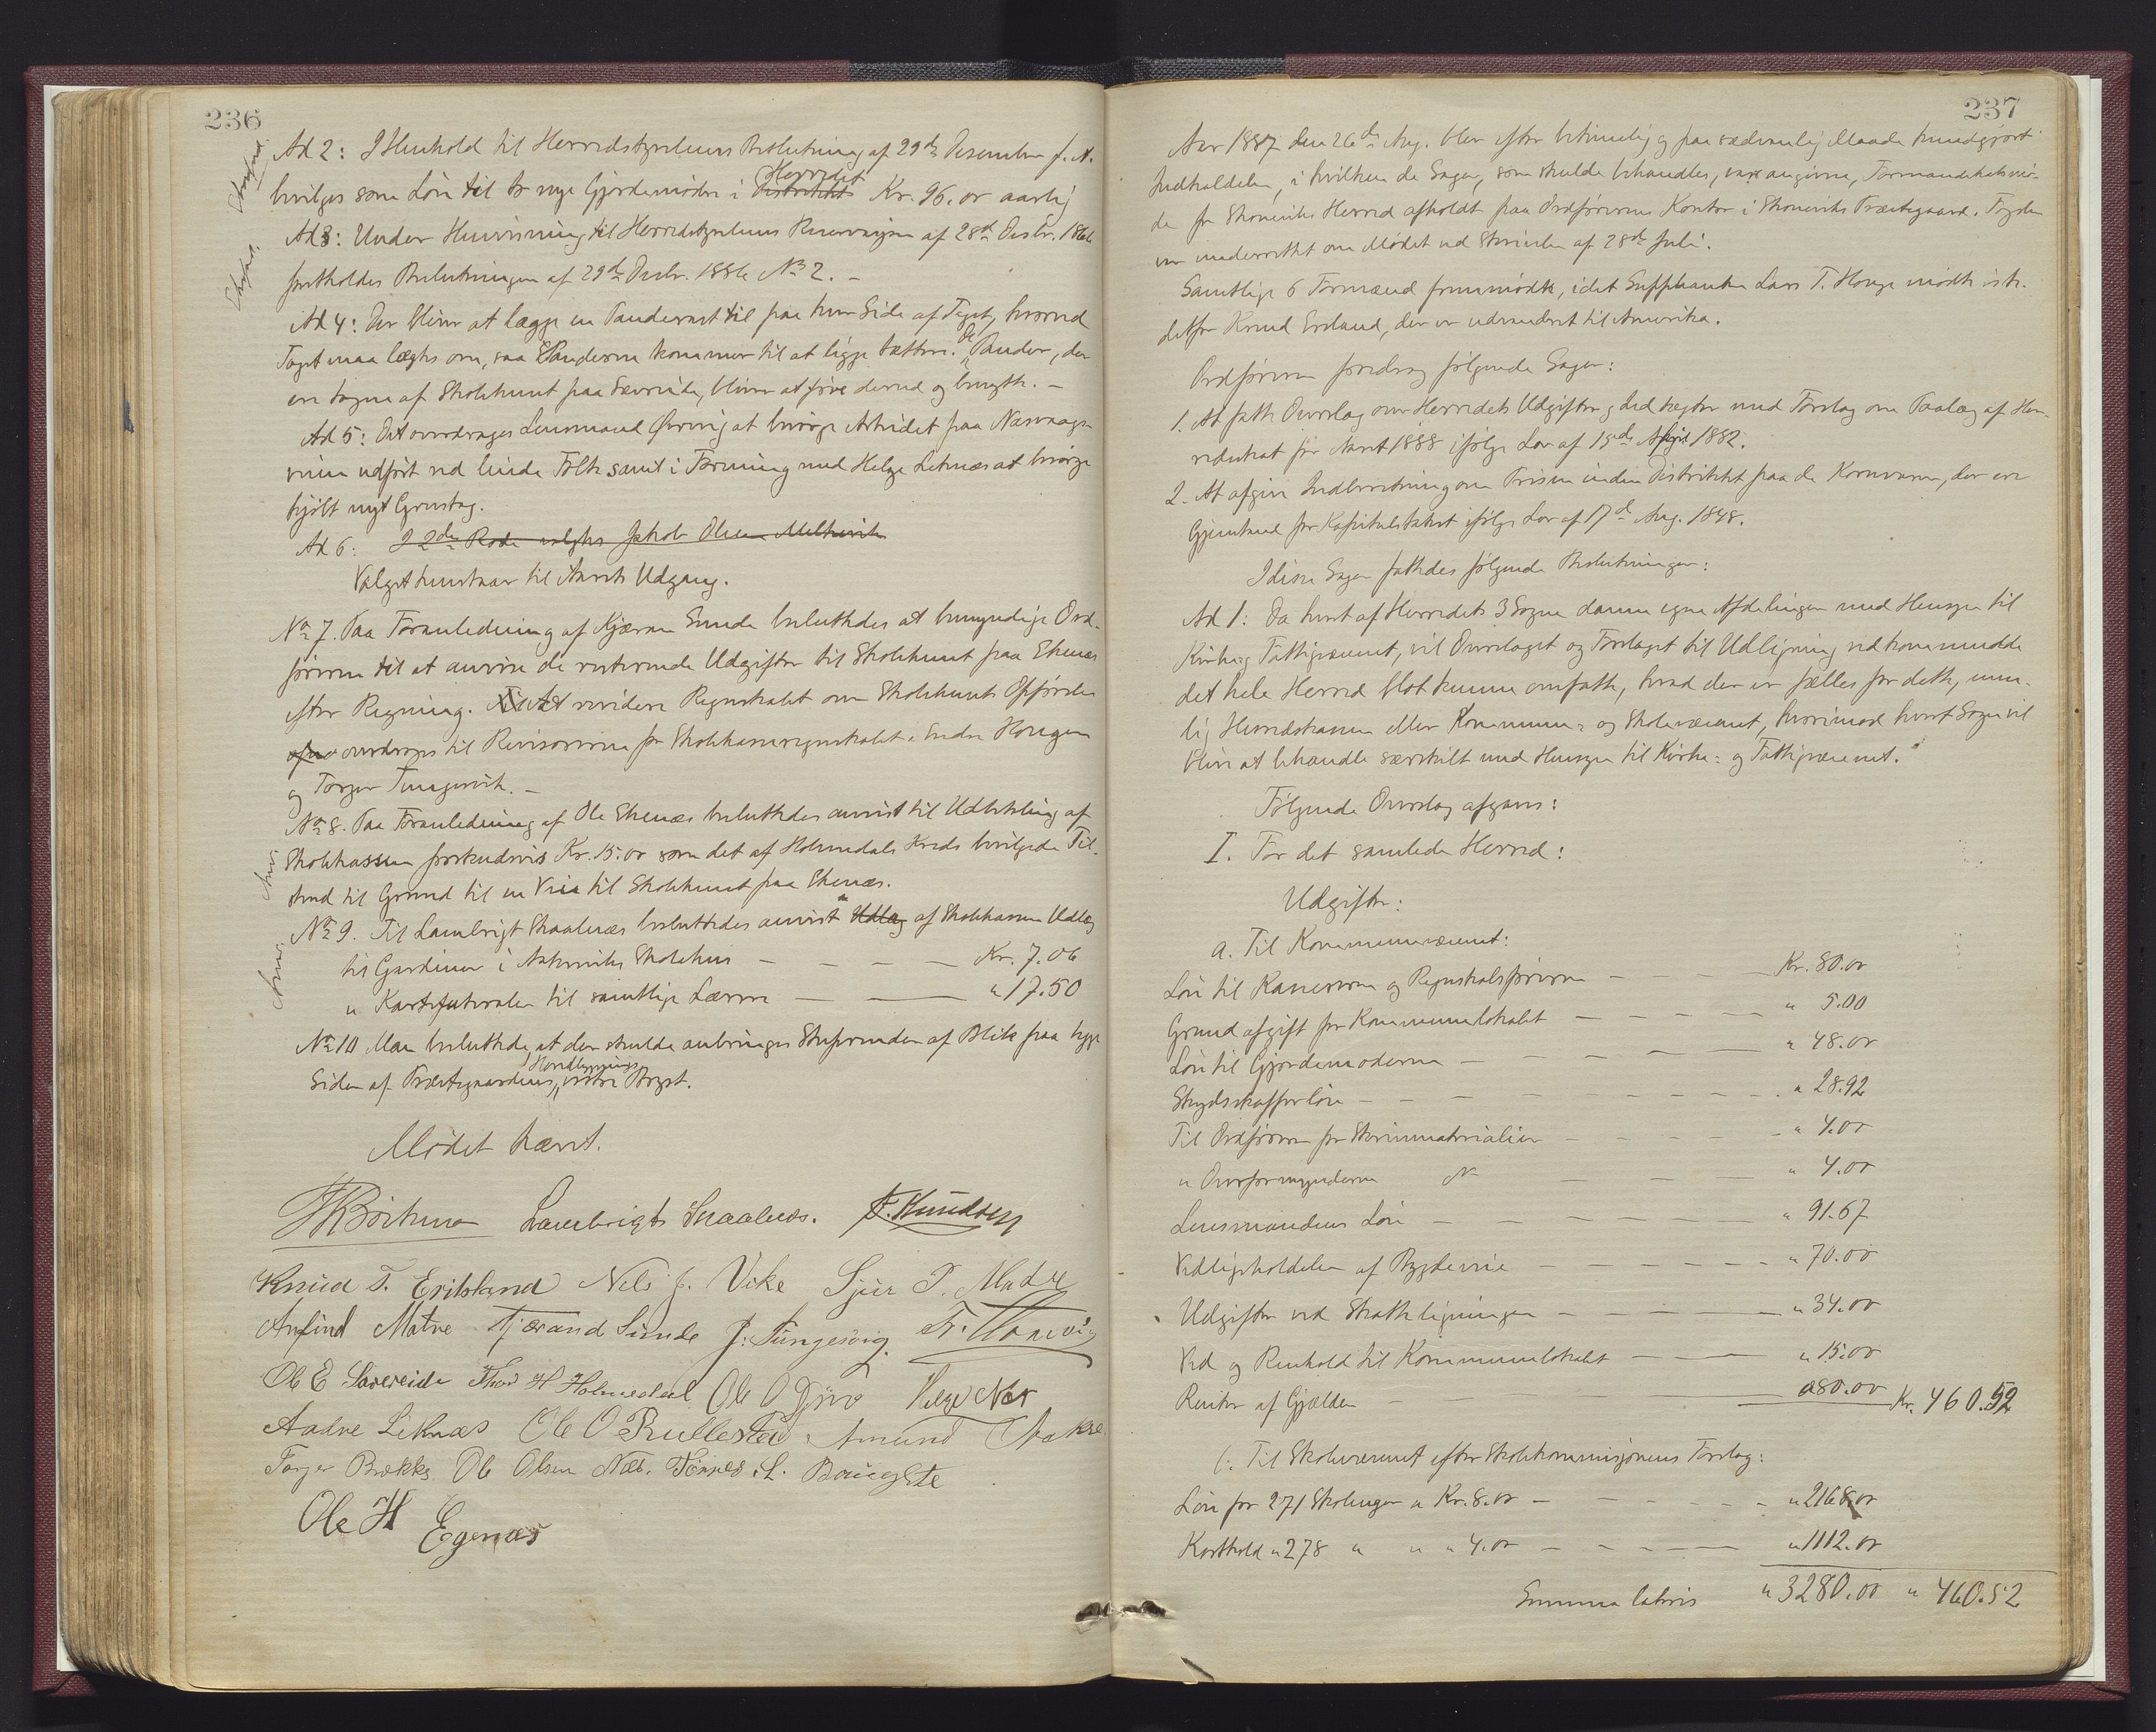 236
Ad 2: I Henhold til Herredstyrelsens Beslutning af 29de Desember f. A.
bevilges som Løn til to nye Gjordemødre i Distriktet Herredet Kr. 96.00 aarlig
Ad 3: Under Henvisning til Herredstyrelsens Reservasjon af 28de Desbr. 1866
fastholdes Beslutningen af 29de Desbr. 1886 No 2. –
Ad 4: Der bliver at lægge en Panderast til paa hver Side af Taget, hvorved
Taget maa lægtes om, saa Panderne kommer til at ligge tættere. De Pander, der
ere tagne af Skolehuset paa Sævreide, bliver at føre derned og benytte. –
Ad 5: Det overdrages Lensmand Østvig at besørge Arbeidet paa Næsvaag-
veien udført ved leiede Folk samt i Forening med Helge Leknæs at besørge
kjøbt nyt Grustag.
Ad 6: I 2den Rode valgtes Jakob Olsen Milkevik
Valget henstaar til Aarets Udgang.
No 7. Paa Foranledning af Kjæran Sunde besluttedes at bemyndige Ord-
føreren til at anvise de resterende Udgifter til Skolehuset paa Ekenæs
efter Regning. At revidere Regnskabet over Skolehusets Opførelse
overdroges til Revisorerne for Skolekasseregnskabet: Endre Hougen
og Torger Tungesvik. –
No 8. Paa Foranledning af Ole Ekenæs besluttedes anvist til Udbetaling af
Skolekassen forskudsvis Kr. 15.00 som det af Holmedals Kreds bevilgede Til-
skud til Grund til en Vei til Skolehuset paa Ekenæs.
No 9. Til Lambrigt Skaalnæs besluttedes anvist Udlæg af Skolekassen Udlæg
til Gardiner i Aakreviks Skolehus – – – – Kr. 7.06
" Kartfuteraler til samtlige Lærere – – " 17.50
No 10 Man besluttede, at der skulde anbringes Skuprender af Blik paa begge
Sider af Præstegaardens Hovedbygnings, vestre Bygst.
Mødet hævet.
Lambrigt Skaalnæs. F. Knudsen
Knud T. Erikstand Nels J. Vike Sjur T. Matre
Anfind Matre Kjærand Sunde J. Tungesvig.
Ole E Sævereide Thor H Holmedal Ole O Djuv Helge Næs
Andre Leknæs Ole O Rullestad Amund
Torger Brekke Ole Olsen Næs. Tønnes L. Baugste
Ole H Egenæs
237
Aar 1887 den 26de Aug. blev efter betimelig og paa sædvanlig Maade kundgjort
Indkaldelse, i hvilken de Sager, som skulde behandles, vare angivne, Formandskabsmø-
de for Skoneviks Herred afholdt paa Ordførerens Kontor i Skoneviks Præstegaard. Fogden
var underrettet om Mødet ved Skrivelse af 28de Juli.
Samtlige 6 Formænd fremmødte, idet Suppleanten Lars T. Houge mødte iste-
detfor Knud Ersland, der er udvandret til Amerika.
Ordføreren foredrog følgende Sager:
1. At fatte Overslag over Herredets Udgifter og Indtægter med Forslag om Paalæg af Her-
redsskat for Aaret 1888 ifølge Lov af 15de April 1882.
2. At afgive Indberetning om Prisen inden Distriktet paa de Kornvarer, der ere
Gjenstand for Kapitelstakst ifølge Lov af 17de Aug. 1848.
I disse Sager fattedes følgende Beslutninger:
Ad 1: Da hvert af Herredets 3 Sogne danne egne Afdelinger med Hensyn til
Kirke- og Fattigvæsenet, vil Overslaget og Forslaget til Udligning vedkommende
det hele Herred blot kunne omfatte, hvad der er fælles for dette, nem-
lig Herredskassen eller Kommune- og Skolevæsenet, hvorimod hvert Sogn vil
blive at behandle særskilt med Hensyn til Kirke- og Fattigvæsenet.
Følgende Overslag afgaves:
I. For det samlede Herred:
Udgifter:
a. Til Kommunevæsenet:
Løn til Kasereren og Regnskabsføreren – – – Kr. 80.00
Grundafgift for Kommunelokalet – – – – " 5.00
Løn til Gjordemoderne – – – – " 48.00
Skydsskafferløn – – – – – " 28.92
Til Ordføreren for Skrivematerialier – – – – " 4.00
" Overformynderen – – – " 4.00
Lensmandens Løn – – – – – " 91.67
Vedligeholdelse af Bygdeveie – – – – – " 70.00
Udgifter ved Skatteligningen – – – – " 34.00
Ved og Renhold til Kommunelokalet – – " 15.00
Renter af Gjælden – – – " 80.00 Kr. 460.52
b. Til Skolevæsenet efter Skolekommisjonens Forslag:
Løn for 271 Skoleuger a Kr. 8.00 – – – – – " 2168.00
Kosthold " 278 " " " 4.00 – – – – " 1112.00
Summa lateris " 3280.00 " 460.52